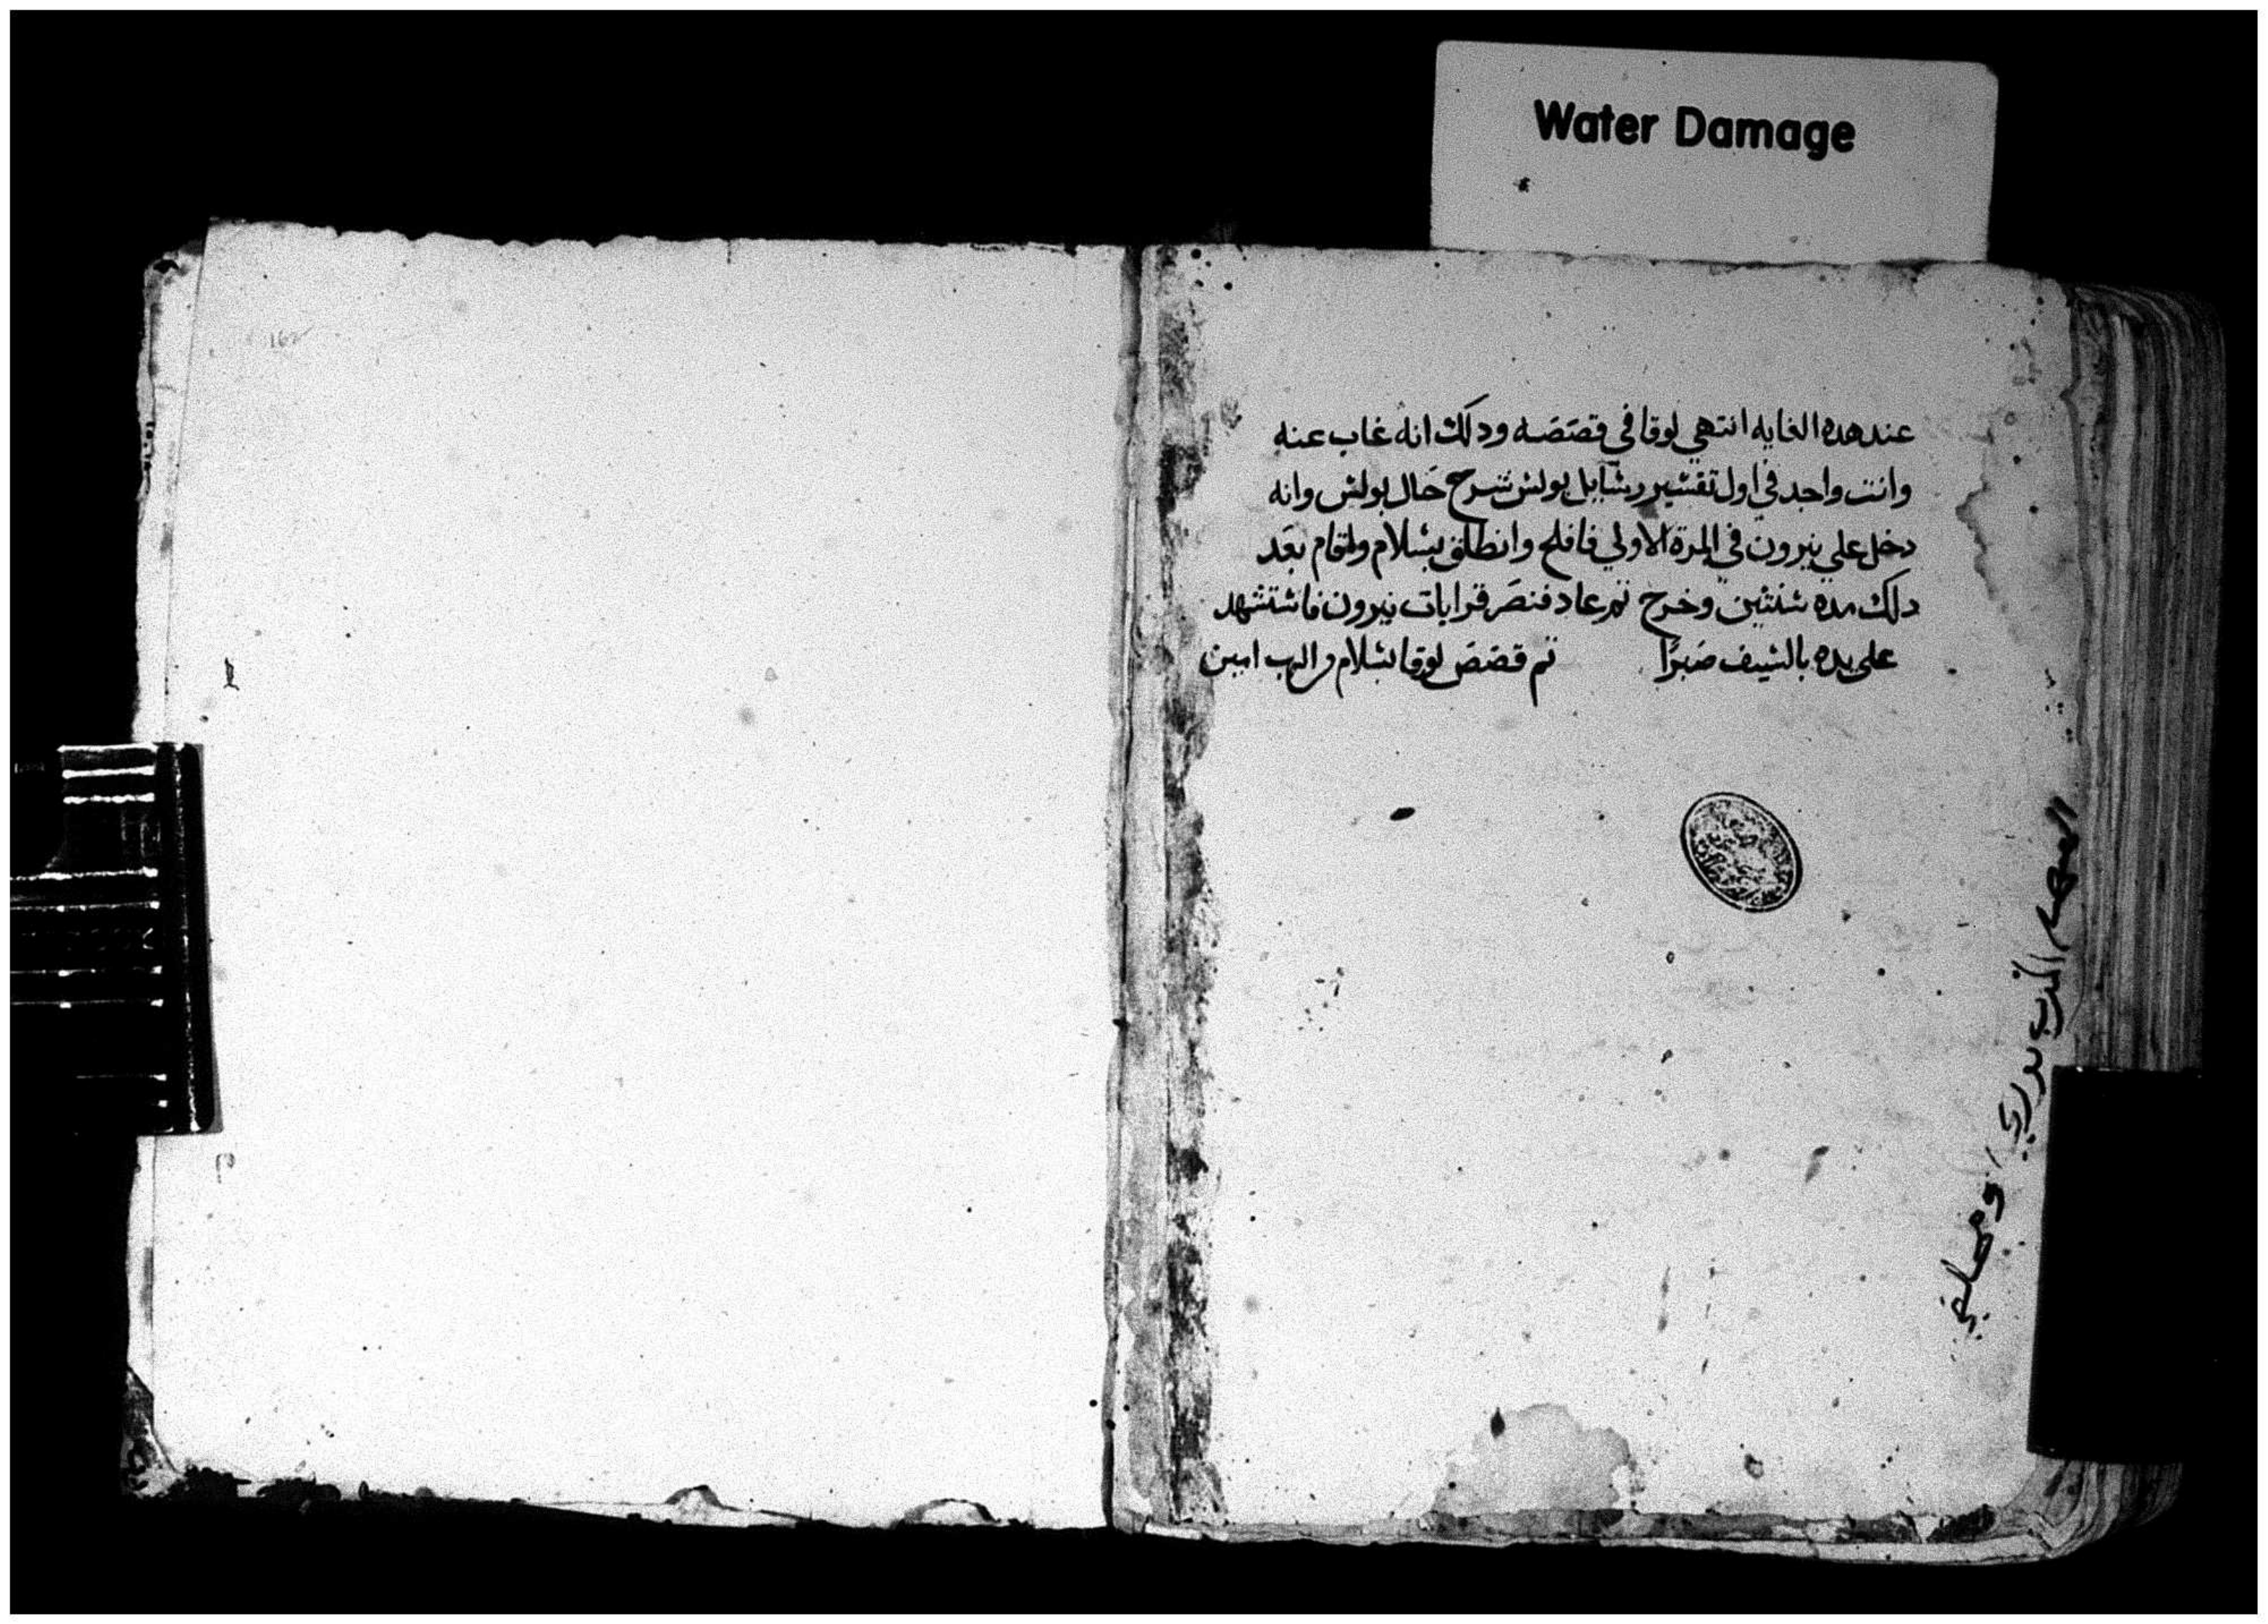 Water Damage
عند هده الغايه انتهي لوقا في قصصه ودلك انه غاب عنه
وانت واجد في اول تفشير رشايل بولش شرح حال بولش وانه
دخل علي نيرون في المرة الاولي فافلح وانطلق بشلام واقام بعد
دلك مده شنتين وخرج تم عاد فنصر قرابات نيرون فاشتشهد
علي يده بالشيف صبرًا تم قصص لوقا بشلام من الرب امين